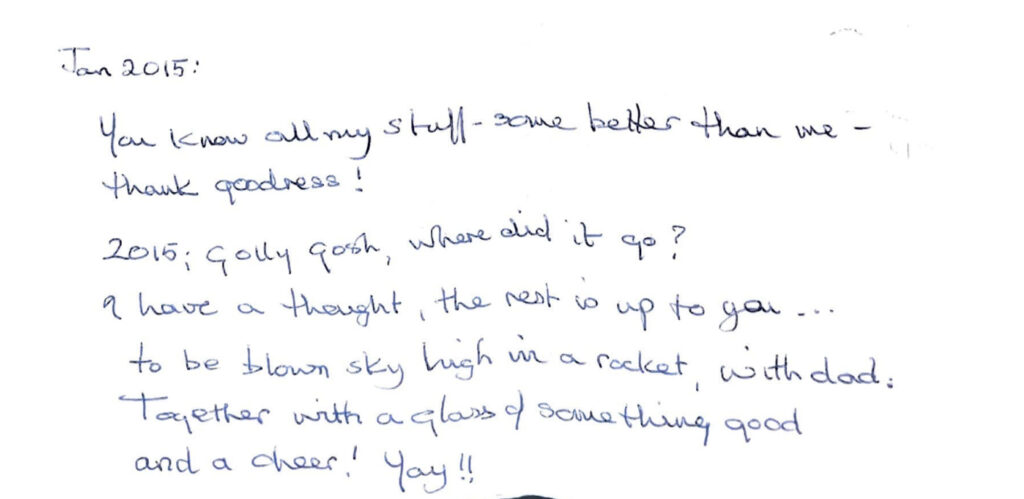 Jan 2015:
You know all my stuff - some better than me -
thank goodness!
2015; Golly gosh, where did it go?
I have a thought, the rest is up to you ...
to be blown sky high in a rocket, with dad.
Together with a glass of something good
and a cheer! Yay!!